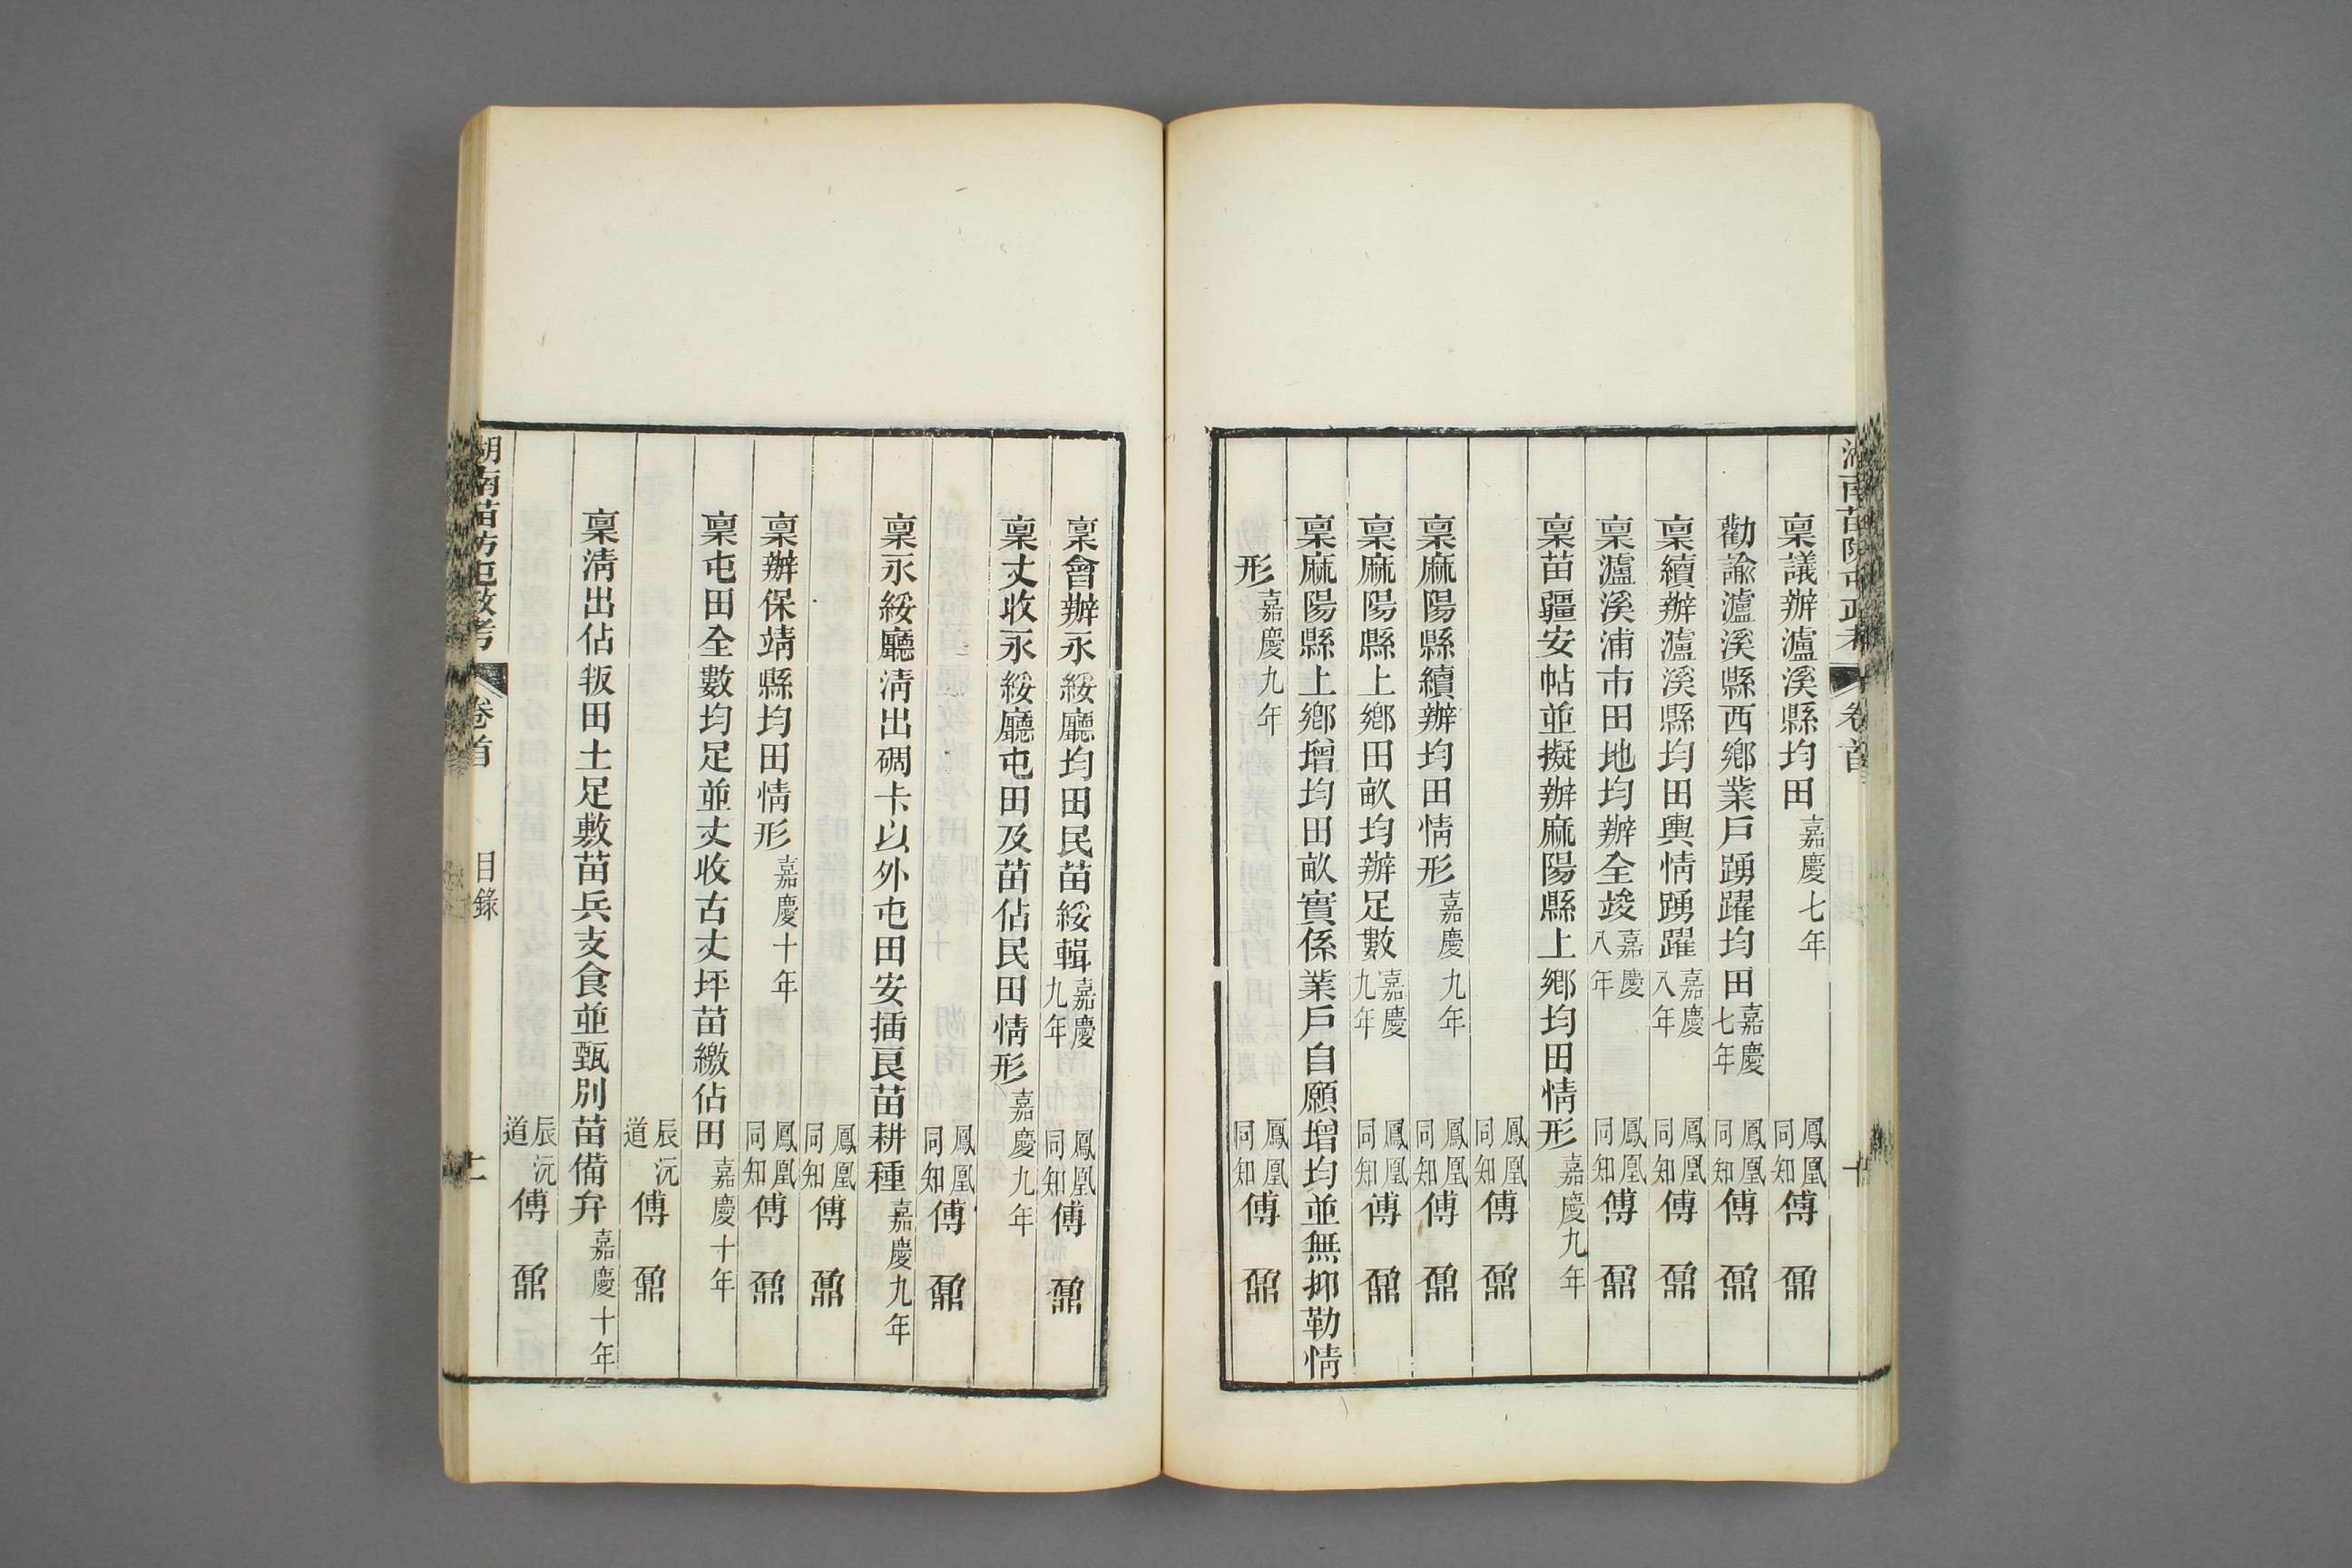 湖南苗防屯政考 卷首 十
稟議辦瀘溪縣均田嘉慶七年 鳳凰同知傅鼐
勸諭瀘溪縣西鄉業戶踴躍均田嘉慶七年 鳳凰同知傅鼐
稟續辦瀘溪縣均田輿情踴躍嘉慶八年 鳳凰同知傅鼐
稟瀘溪浦市田地均辦全竣嘉慶八年 鳳凰同知傅鼐
稟苗疆安帖並擬辦麻陽縣上鄉均田情形嘉慶九年
鳳凰同知傅鼐
稟麻陽縣續辦均田情形嘉慶九年 鳳凰同知傅鼐
稟麻陽縣上鄉田畝均辦足數嘉慶九年 鳳凰同知傅鼐
稟麻陽縣上鄉增均田畝實係業戶自願增均並無抑勒情
形嘉慶九年 鳳凰同知傅鼐
稟會辦永綏廳均田民苗綏輯嘉慶九年 鳳凰同知傅鼐
稟丈收永綏廳屯田及苗佔民田情形嘉慶九年
鳳凰同知傅鼐
稟永綏廳清出碉卡以外屯田安插良苗耕種嘉慶九年
鳳凰同知傅鼐
稟辦保靖縣均田情形嘉慶十年 鳳凰同知傅鼐
稟屯田全數均足並丈收古丈坪苗繳佔田嘉慶十年
辰沅道傅鼐
稟清出佔叛田土足敷苗兵支食並甄別苗備弁嘉慶十年
辰沅道傅鼐
湖南苗防屯政考 卷首 目錄